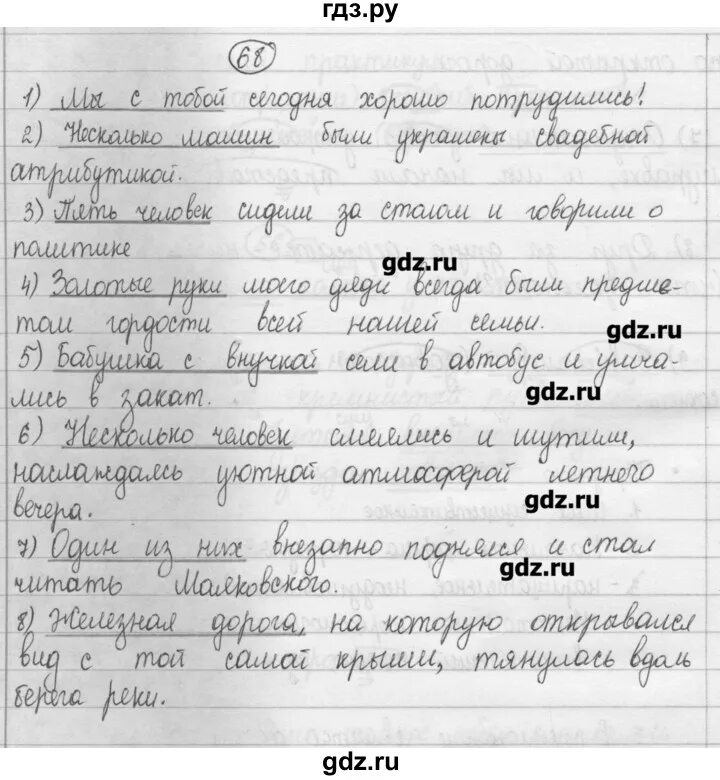 гдз.ру
68
1) Мы с тобой сегодня хорошо потрудились!
2) Несколько машин были украшены свадебной
атрибутикой.
3) Пять человек сидели за столом и говорили о
политике
gdz.ru
4) Золотые руки моего дяди всегда были предме-
том гордости всей нашей семьи.
gdz.ru
5) Бабушка с внучкой сели в автобус и умча-
лись в закат.
gdz.ru
6) Несколько человек смеялись и шутили,
наслаждаясь уютной атмосферой летнего
вечера.
gdz.ru
7) Один из них внезапно поднялся и стал
читать Маяковского.
gdz.ru
8) Железная дорога, на которую открывался
вид с той самой крыши, тянулась вдоль
берега реки.
gdz.ru